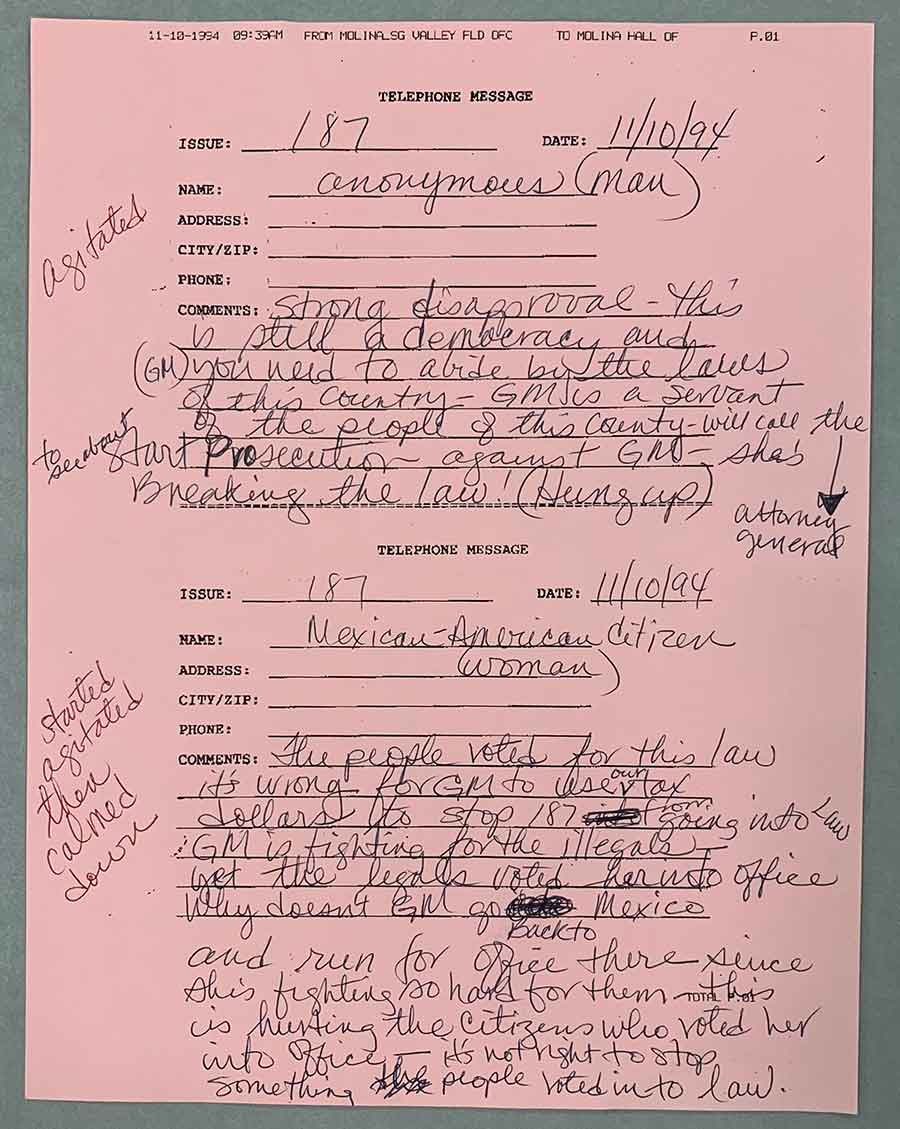 11-10-1994 09:39AM FROM MOLINA.SG VALLEY FLD OFC TO MOLINA HALL OF P.01
TELEPHONE MESSAGE
ISSUE: 187 DATE: 11/10/94
NAME: anonymous (man)
ADDRESS:
CITY/ZIP:
PHONE:
agitated
COMMENTS: Strong disapproval - this
is still a democracy and
(GM) you need to abide by the laws
of this country - GM is a servant
of the people of this county - will call the
attorney
general
to see about
start prosecution against GM - she's
Breaking the law! (Hung up)
TELEPHONE MESSAGE
ISSUE: 187 DATE: 11/10/94
NAME: Mexican-American Citizen
(woman)
ADDRESS:
CITY/ZIP:
PHONE:
started
agitated
then
calmed
down
COMMENTS: The people voted for this law
it's wrong for GM to use our tax
dollars to stop 187 from going into law
GM is fighting for the illegals -
yet the legals voted her into office
Why doesn't GM go Back to Mexico
and run for office there since
shis fighting so hard for them - this
TOTAL P.01
is hurting the citizens who voted her
into office - it's not right to stop
something people voted into law.